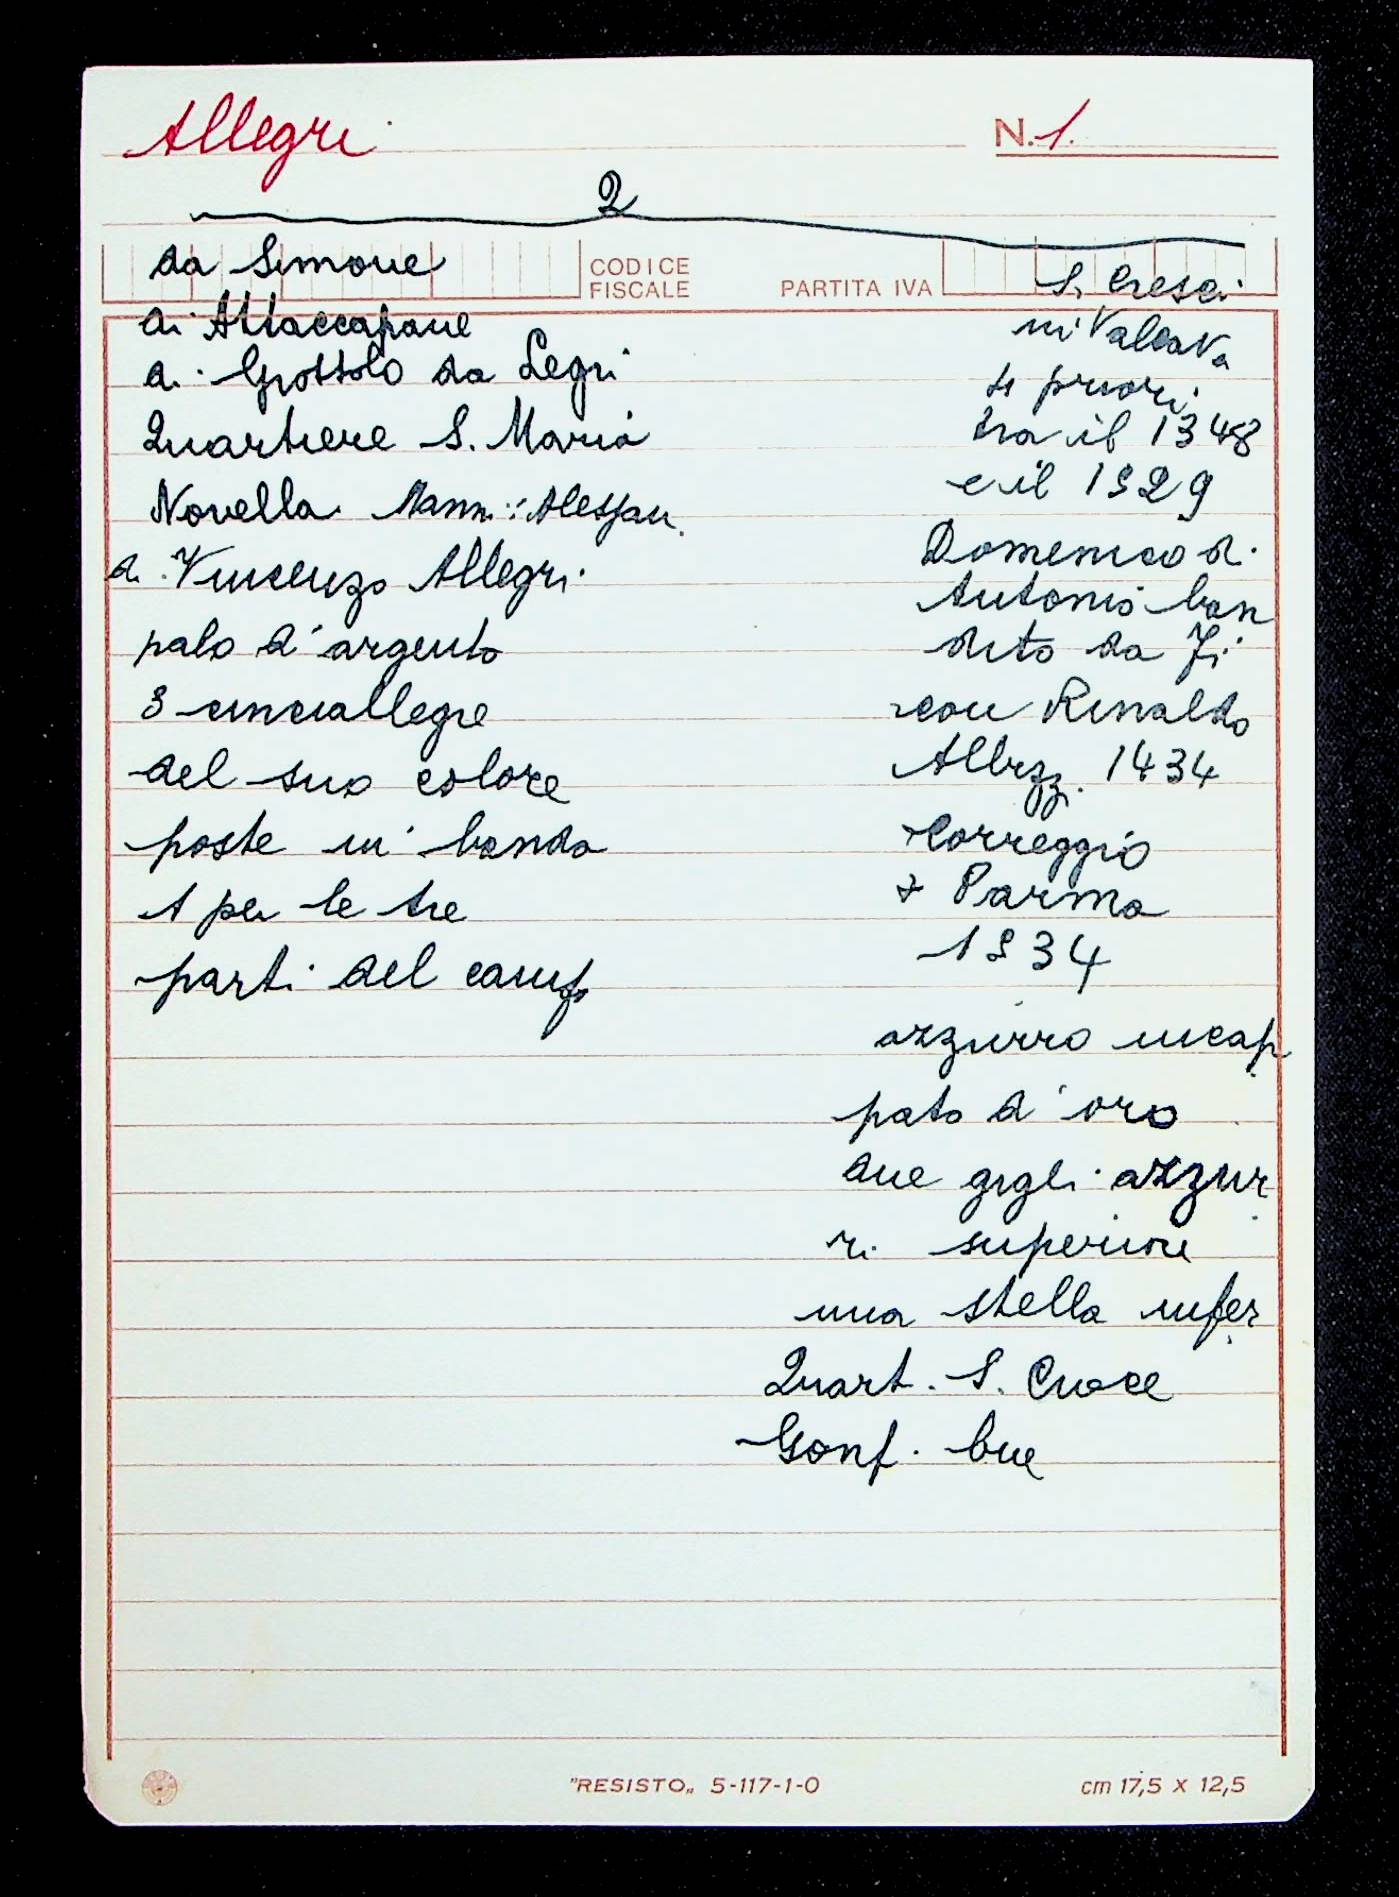 Allegri N. 1.
2
CODICE FISCALE
PARTITA IVA
da Simone
di Attaccapane
di Grottolo da Legri
Quartiere S. Maria
Novella Nanni: Alessan
di Vincenzo Allegri
palo d'argento
3 cinciallegre
del suo colore
poste in banda
1 per le tre
parti del campo
S. Cresci
in Valcava
4 priori
tra il 1348
e il 1529
Domenico di
Antonio ban
dito da Fi
con Rinaldo
Albizzi 1434
Correggio
+ Parma
1534
azzurro incap
pato d'oro
due gigli azzur
ri superiori
una stella infer
Quart. S. Croce
Gonf. bue
"RESISTO„ 5-117-1-0
cm 17,5 X 12,5